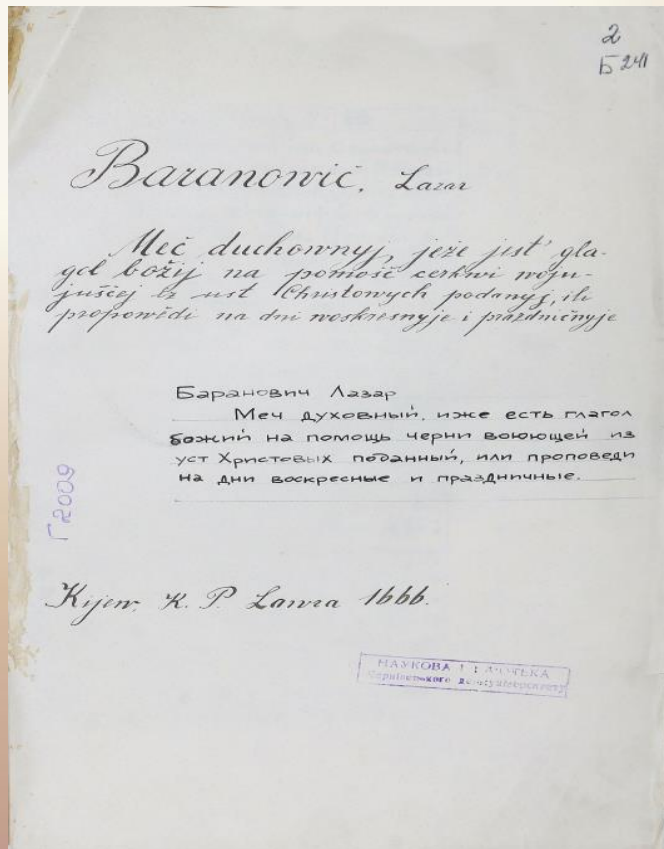 2
Б 241
Baranowič, Lazar
Meč duchownyj, ježe jest' gla-
gol božij na pomošč cerkwi woju-
juščej iz ust Christowych podanyj, ili
propowědi na dni woskresnyje i prazdničnyje
Баранович Лазар
Меч духовный, иже есть глагол
божий на помощь черни воюющей из
уст Христовых поданный, или проповеди
на дни воскресные и праздничные.
Г2009
Kijew. K. P. Lawra 1666.
НАУКОВА
Чернівецького держуніверситету